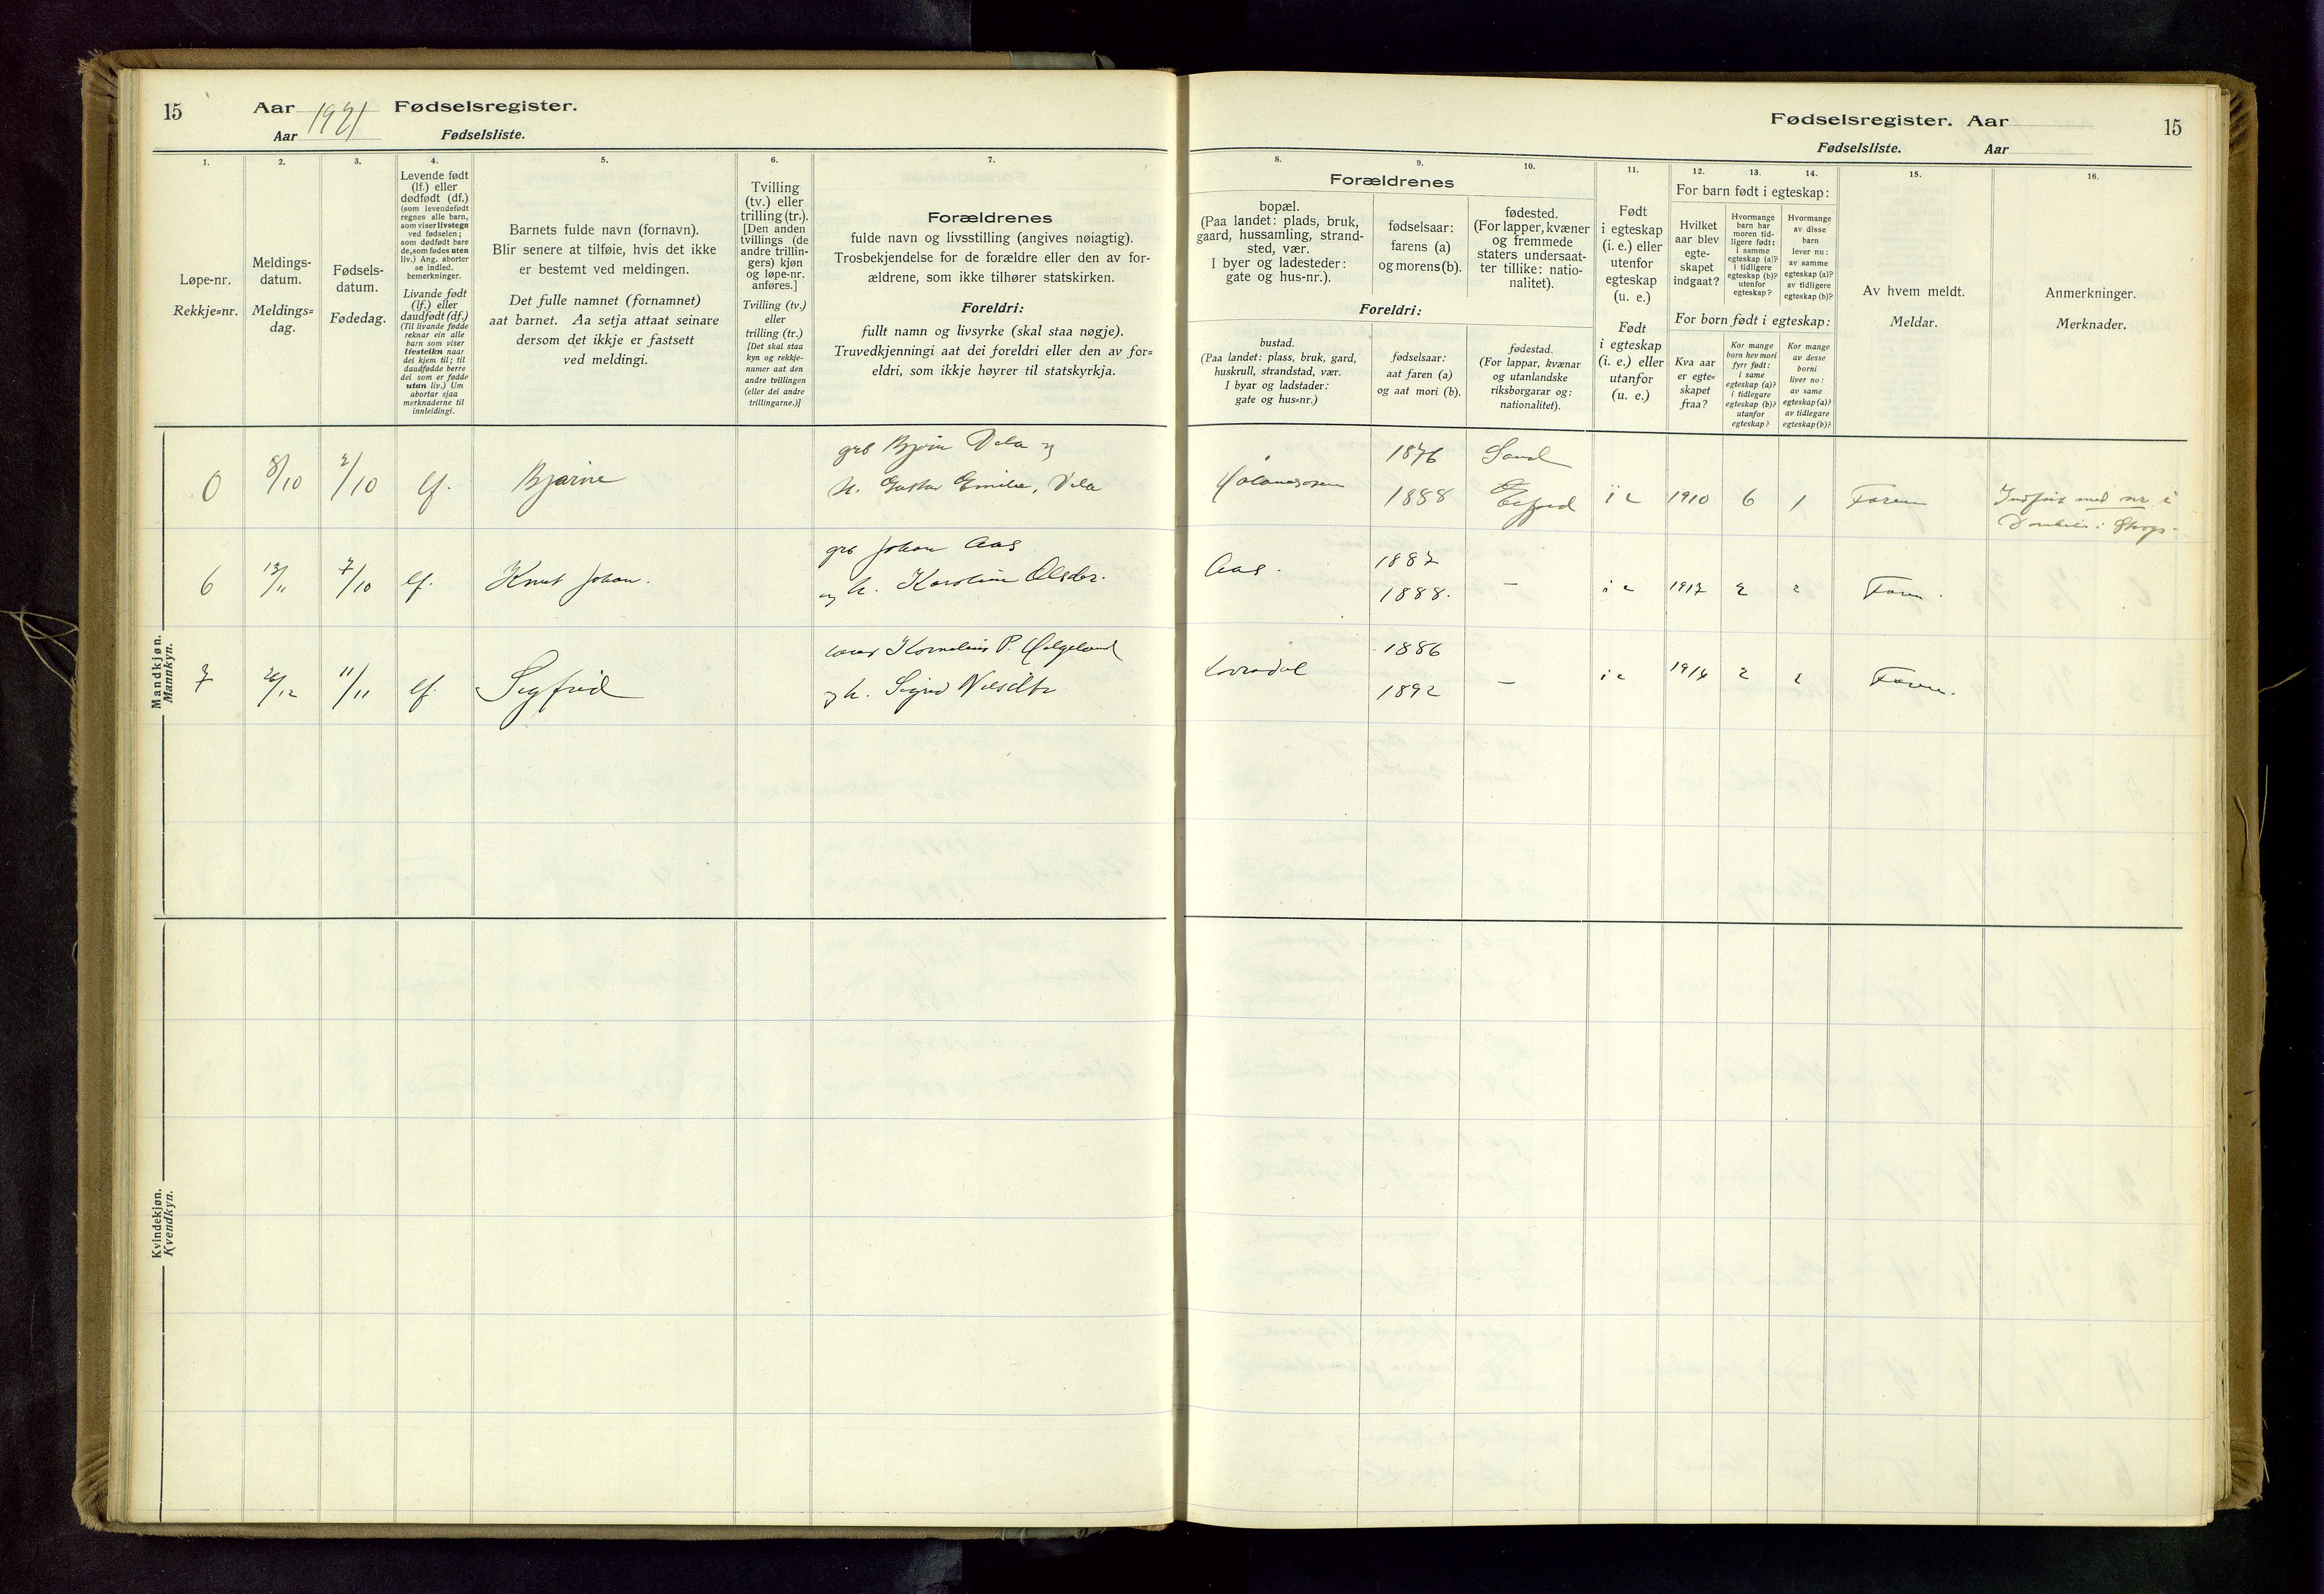 15
Aar 1921 Fødselsregister.
Aar Fødselsliste.
Fødselsregister. Aar
Fødselsliste. Aar
15
1.
Løpe-nr.
Rekkje=nr.
2.
Meldings-
datum.
Meldings=
dag.
3.
Fødsels-
datum.
Fødedag.
4.
Levende født
(lf.) eller
dødfødt (df.)
(som levendefødt
regnes alle barn,
som viser livstegn
ved fødselen;
som dødfødt bare
de, som fødes uten
liv.) Ang. aborter
se indled.
bemerkninger.
Livande født
(lf.) eller
daudfødt (df.)
(Til livande fødde
reknar ein alle
barn som viser
livsteikn naar
dei kjem til; til
daudfødde berre
dei som er fødde
utan liv.) Um
abortar sjaa
merknaderne til
innleidingi.
5.
Barnets fulde navn (fornavn).
Blir senere at tilføie, hvis det ikke
er bestemt ved meldingen.
Det fulle namnet (fornamnet)
aat barnet. Aa setja attaat seinare
dersom det ikkje er fastsett
ved meldingi.
6.
Tvilling
(tv.) eller
trilling (tr.).
[Den anden
tvillings (de
andre trillin-
gers) kjøn
og løpe-nr.
anføres.]
Tvilling (tv.)
eller
trilling (tr.)
[Det skal staa
kyn og rekkje-
numer aat den
andre tvillingen
(eller dei andre
trillingarne.)]
7.
Forældrenes
fulde navn og livsstilling (angives nøiagtig).
Trosbekjendelse for de forældre eller den av for-
ældrene, som ikke tilhører statskirken.
Foreldri:
fullt namn og livsyrke (skal staa nøgje).
Truvedkjenningi aat dei foreldri eller den av for=
eldri, som ikkje høyrer til statskyrkja.
8.
Forældrenes
bopæl.
(Paa landet: plads, bruk,
gaard, hussamling, strand-
sted, vær.
I byer og ladesteder:
gate og hus-nr.).
Foreldri:
bustad.
(Paa landet: plass, bruk, gard,
huskrull, strandstad, vær.
I byar og ladstader:
gate og hus=nr.)
9.
fødselsaar:
farens (a)
og morens (b).
fødselsaar:
aat faren (a)
og aat mori (b).
10.
fødested.
(For lapper, kvæner
og fremmede
staters undersaat-
ter tillike: natio-
nalitet).
fødestad.
(For lappar, kvænar
og utanlandske
riksborgarar og:
nationalitet).
11.
Født
i egteskap
(i. e.) eller
utenfor
egteskap
(u. e.)
Født
i egteskap
(i. e.) eller
utanfor
(u. e.)
12. 13. 14.
For barn født i egteskap:
Hvilket
aar blev
egte-
skapet
indgaat?
Hvormange
barn har
moren tid-
ligere født:
i samme
egteskap (a)?
i tidligere
egteskap (b)?
utenfor
egteskap?
Hvormange
av disse
barn
lever nu:
av samme
egteskap (a)?
av tidligere
egteskap (b)?
For born født i egteskap:
Kva aar
er egte=
skapet
fraa?
Kor mange
born hev mori
fyrr født:
i same
egteskap (a)?
i tidlegare
egteskap (b)?
utanfor
egteskap?
Kor mange
av desse
borni
liver no:
av same
egteskap (a)?
av tidlegare
egteskap (b)?
15.
Av hvem meldt.
Meldar.
16.
Anmerkninger.
Merknader.
Mandkjøn.
Mannkyn.
0 8/10 2/10 lf. Bjarne
grb Bjørn Vela og
h. Emilie, Vela
1876 Sand
1888
i e 1910 6 1 Faren
med nr. i
6 7/10 lf. Knut Johan.
grb Johan Aas
og h. Karoline Olsdtr.
Aas.
1887
1888. –
i e 1917 2 2 Faren.
7 11/11 lf. Sigfrid
Kornelius P. Helgeland
og h. Sigrid Nilsdtr
1886
1892 –
i e 1914 2 2 Faren.
Kvindekjøn.
Kvendkyn.